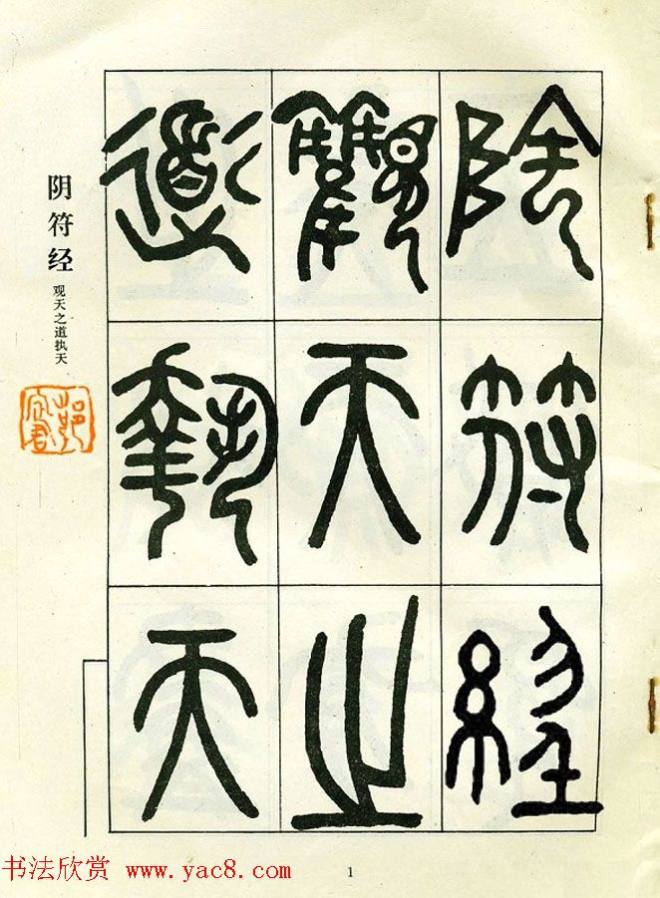 陰符經
觀天之
道執天
阴符经
观天之道执天
书法欣赏 www.yac8.com
1